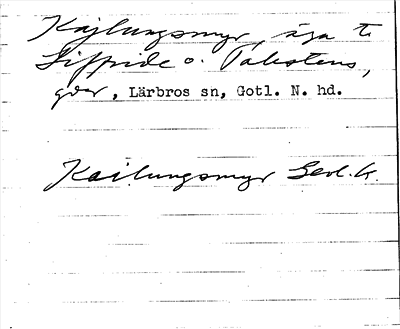 Kajlungsmyr, äga t.
Siffride o. Takstens,
gdar, Lärbros sn, Gotl. N. hd.
Kailungsmyr Geol. k.